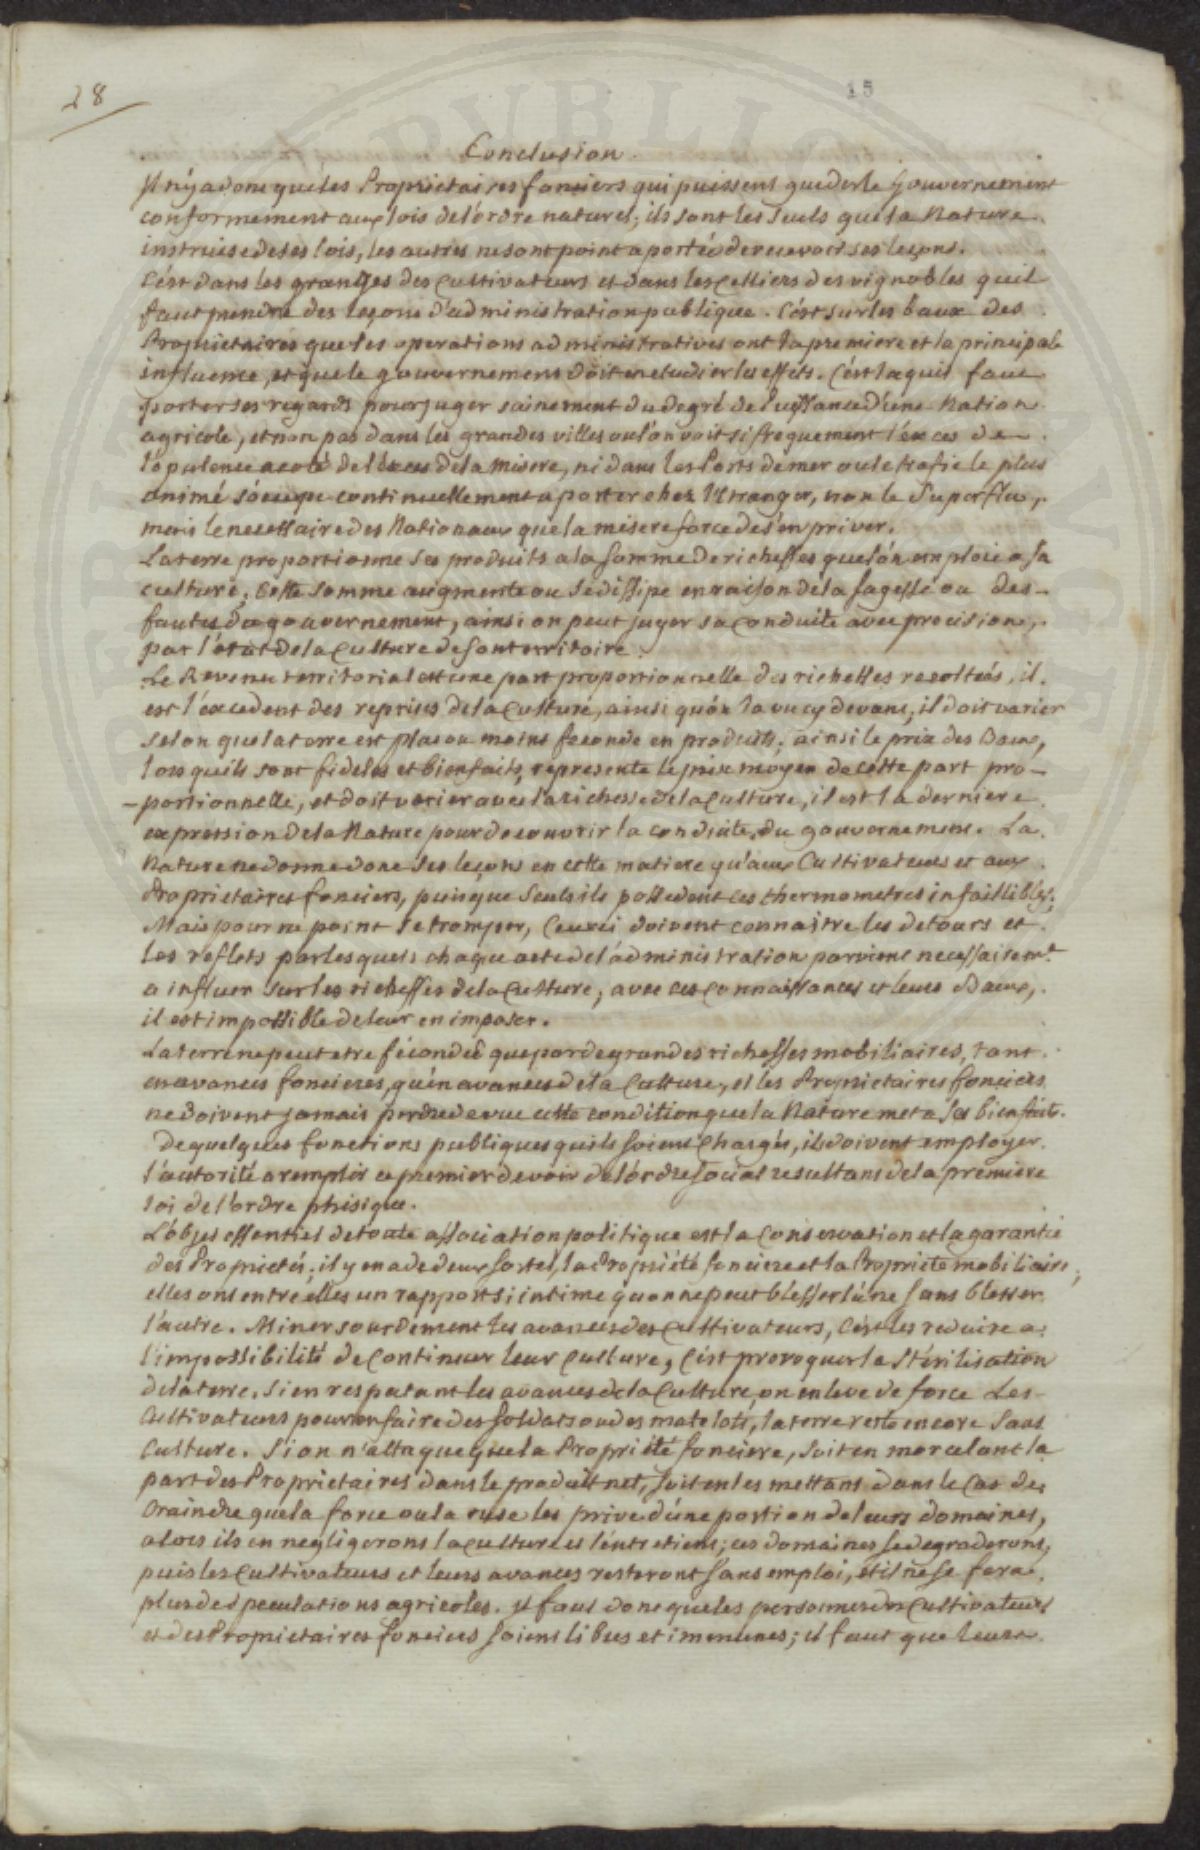 28
15
Conclusion.
Il n'y a donc que les Proprietaires fonciers qui puissent guider le Gouvernement
conformement aux lois de l'ordre naturel; ils sont les seuls que la Nature
instruise de ses lois, les autres ne sont point a portée de recevoir ses leçons.
C'est dans les granges des Cultivateurs et dans les Celliers des vignobles qu'il
faut prendre des leçons d'administration publique. C'est sur les baux des
Proprietaires que les operations administratives ont la premiere et la principale
influence, et que le gouvernement doit en etudier les effets. C'est la qu'il faut
porter ses regards pour juger sainement du degré de puissance d'une Nation
agricole, et non pas dans les grandes villes ou l'on voit si frequement l'exces de
l'opulence a coté de l'exces de la Misere, ni dans les Ports de mer ou le trafic le plus
animé s'occupe continuellement a porter chez l'Etranger, non le Superflu,
mais le necessaire des Nationaux que la misere force de s'en priver.
La terre proportionne ses produits a la somme de richesses que l'on emploie a sa
culture; Cette somme augmente ou se dissipe en raison de la sagesse ou des
fautes du gouvernement, ainsi on peut juger sa conduite avec precision,
par l'etat de la Culture de son territoire.
Le Revenu territorial est une part proportionnelle des richesses recoltées, il
est l'excedent des reprises de la Culture, ainsi qu'on l'a vu cy devant; il doit varier
selon que la terre est plus ou moins feconde en produits; ainsi le prix des Baux,
lorsqu'ils sont fideles et bienfaits, represente le prix moyen de cette part pro-
-portionnelle, et doit varier avec la richesse de la Culture, il est la derniere
expression de la Nature pour decouvrir la conduite du gouvernement. La
Nature ne donne donc ses leçons en cette matiere qu'aux Cultivateurs et aux
Proprietaires fonciers, puisque seuls ils possedent ces thermometres infaillibles;
Mais pour ne point se tromper, Ceux ci doivent connaitre les detours et
les reflets par lesquels chaque acte de l'administration parvient necessairemt.
a influer sur les richesses de la Culture; avec ces connaissances et leurs Baux,
il est impossible de leur en imposer.
La terre ne peut etre fécondée que par de grandes richesses mobiliaires, tant
en avances foncieres, qu'en avances de la Culture, et les Proprietaires fonciers
ne doivent jamais perdre de vue cette condition que la Nature met a ses bienfaits.
De quelques fonctions publiques qu'ils soient Chargés, ils doivent employer
l'autorité a remplir ce premier devoir de l'ordre social resultans de la premiere
loi de l'ordre phisique.
L'objet essentiel de toute association politique est la Conservation et la garantie
des Proprietés; il y en a de deux sortes, la Propriété fonciere et la Propriété mobiliaire;
elles ont entre elles un rapport si intime qu'on ne peut blesser l'une sans blesser
l'autre. Miner sourdement les avances des Cultivateurs, C'est les reduire a
l'impossibilité de Continuer leur Culture, C'est provoquer la Stérilisation
de la terre. Si en respectant les avances de la Culture, on enleve de force Les
Cultivateurs pour en faire des soldats ou des matelots, la terre reste encore sans
Culture. Si on n'attaque que la Propriété fonciere, soit en morcelant la
part des Proprietaires dans le produit net, soit en les mettans dans le Cas de
Craindre que la force ou la ruse les prive d'une portion de leurs domaines,
alors ils en negligerons la culture et l'entretiens; ces domaines se degraderons,
puis les Cultivateurs et leurs avances resteront sans emploi, et il ne se fera
plus de speculations agricoles. Il faut donc que les personnes des Cultivateurs
et des Proprietaires fonciers soient libres et immunes; il faut que leurs